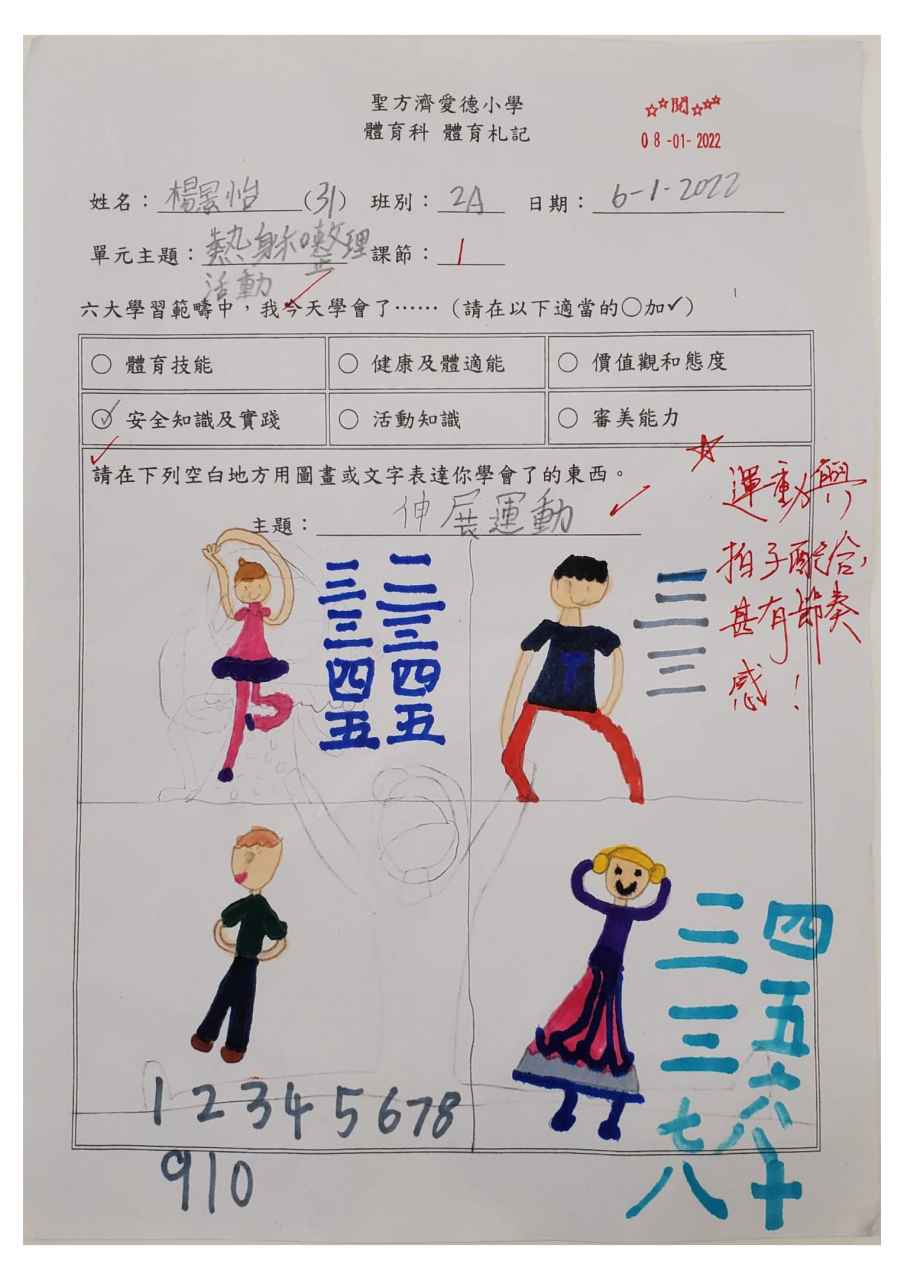 聖方濟愛德小學
體育科 體育札記
☆☆閱☆☆☆
08-01-2022
姓名：楊景怡(31) 班別：2A 日期：6-1-2022
單元主題：熱身和整理活動 課節：1
六大學習範疇中，我今天學會了……（請在以下適當的○加✓）
○ 體育技能 ○ 健康及體適能 ○ 價值觀和態度
✓ 安全知識及實踐 ○ 活動知識 ○ 審美能力
請在下列空白地方用圖畫或文字表達你學會了的東西。
主題：伸展運動
運動與
拍子配合，
甚有節奏
感！
四 四
五 五
三
1 2 3 4 5 6 7 8
9 10
四
五
三 六
七 八
八 十